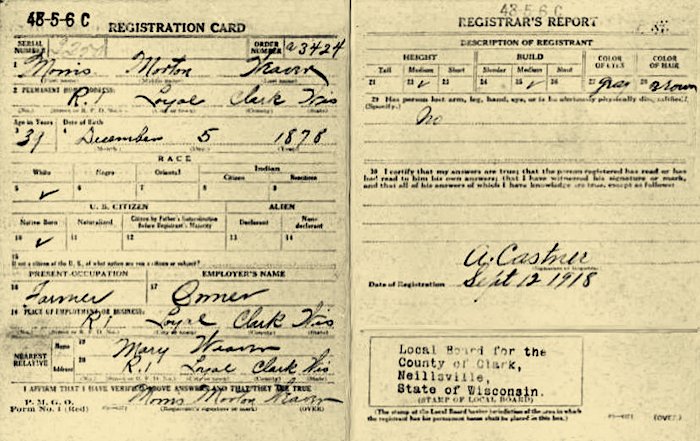 48-5-6 C
REGISTRATION CARD
SERIAL NUMBER
ORDER NUMBER a 3424
1 Morris Morton Weaver
2 PERMANENT HOME ADDRESS:
R.1 Loyal Clark Wis
Age in Years Date of Birth
3 39 4 December 5 1878
RACE
White Negro Oriental Indian
Citizen Noncitizen
5 ✓ 6 7 8 9
U. S. CITIZEN ALIEN
Native Born Naturalized Citizen by Father's Naturalization Before Registrant's Majority Declarant Non-declarant
10 ✓ 11 12 13 14
15
If not a citizen of the U. S., of what nation are you a citizen or subject?
PRESENT OCCUPATION EMPLOYER'S NAME
16 Farmer 17
18 PLACE OF EMPLOYMENT OR BUSINESS:
R.1 Loyal Clark Wis
NEAREST RELATIVE
Name 19 Mary Weaver
Address 20 R.1 Loyal Clark Wis
I AFFIRM THAT I HAVE VERIFIED ABOVE ANSWERS AND THAT THEY ARE TRUE
P. M. G. O.
Form No. 1 (Red) Morris Morton Weaver
(Registrant's signature or mark) (OVER)
48-5-6 C
REGISTRAR'S REPORT
DESCRIPTION OF REGISTRANT
HEIGHT BUILD COLOR OF EYES COLOR OF HAIR
Tall Medium Short Slender Medium Stout
21 22 ✓ 23 24 25 ✓ 26 27 gray 28 brown
29 Has person lost arm, leg, hand, eye, or is he obviously physically disqualified?
(Specify.)
No
30 I certify that my answers are true; that the person registered has read or has
had read to him his own answers; that I have witnessed his signature or mark,
and that all of his answers of which I have knowledge are true, except as follows:
A. Castner
(Signature of Registrar)
Date of Registration Sept 12 1918
Local Board for the
County of Clark,
Neillsville,
State of Wisconsin.
(STAMP OF LOCAL BOARD)
(The stamp of the Local Board having jurisdiction of the area in which
the registrant has his permanent home shall be placed in this box.)
(OVER)